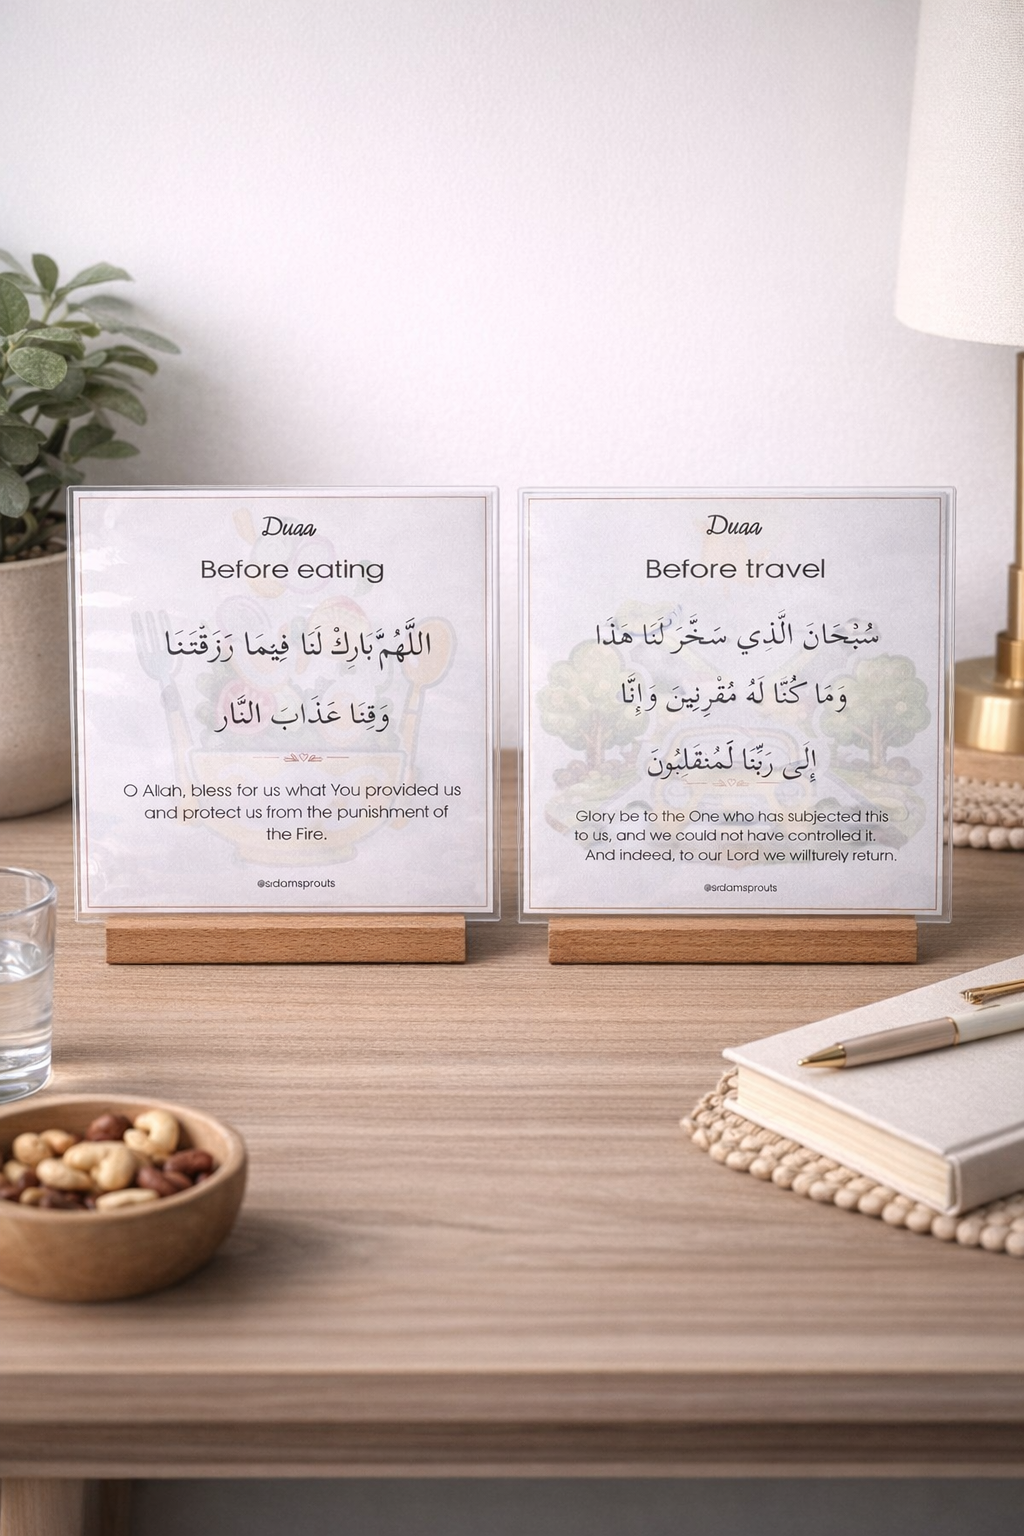 Duaa
Before eating
اللَّهُمَّ بَارِكْ لَنَا فِيمَا رَزَقْتَنَا
وَقِنَا عَذَابَ النَّار
O Allah, bless for us what You provided us
and protect us from the punishment of
the Fire.
@sidamsprouts
Duaa
Before travel
سُبْحَانَ الَّذِي سَخَّرَ لَنَا هَذَا
وَمَا كُنَّا لَهُ مُقْرِنِينَ وَإِنَّا
إِلَى رَبِّنَا لَمُنقَلِبُونَ
Glory be to the One who has subjected this
to us, and we could not have controlled it.
And indeed, to our Lord we willturely return.
@sidamsprouts